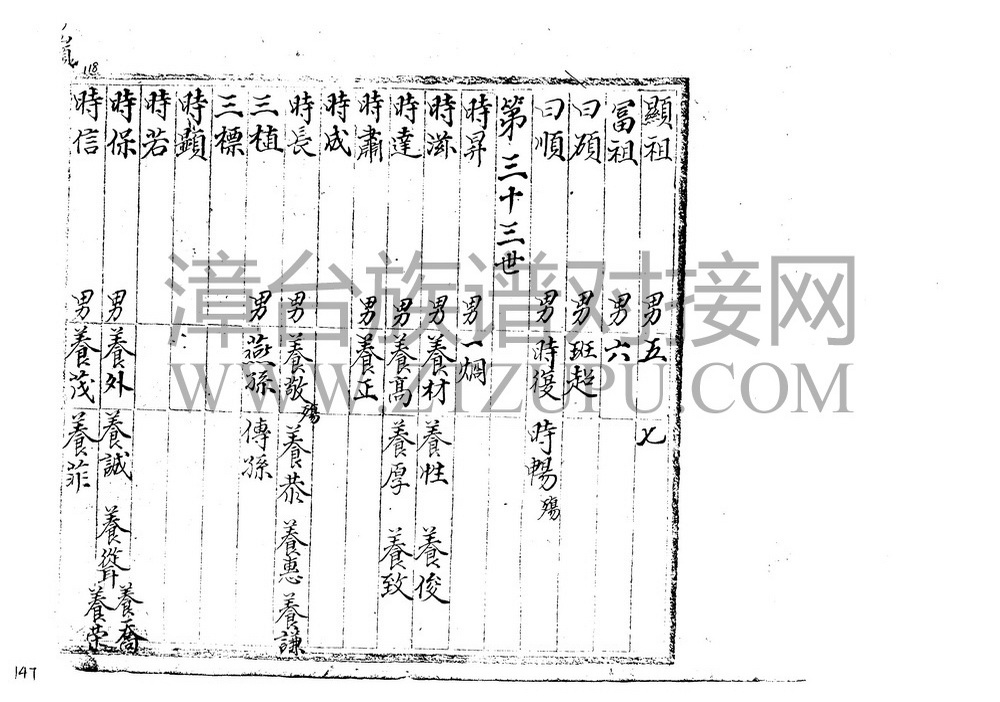 118
顯祖 男 五 七
富祖 男 六
曰碩 男 班超
曰順 男 時復 時暢 殤
第三十三世
時昇 男 一烱
時滋 男 養材 養性 養俊
時達 男 養高 養厚 養致
時肅 男 養正
時成
時長 男 養敬 殤 養恭 養惠 養謙
三植 男 燕孫 傳孫
三標
時顯
時若
時保 男 養外 養誠 養聳 養喬 養榮
時信 男 養茂 養菲
147
漳台族谱对接网
WWW.ZTZUPU.COM